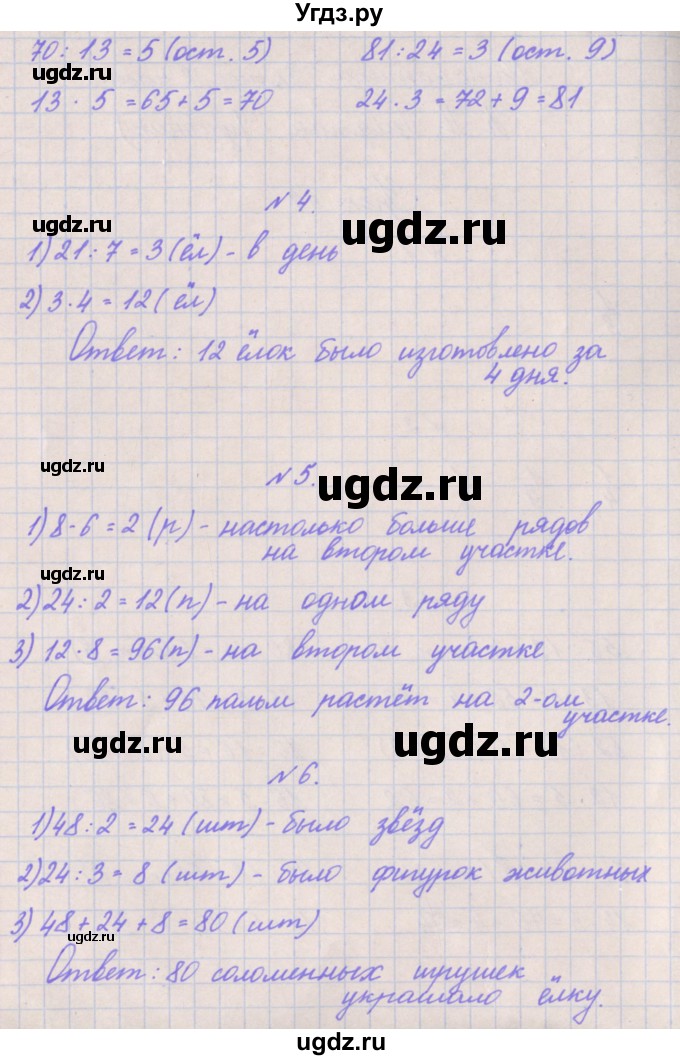 Угдз.ру
70 : 13 = 5 (ост. 5)    81 : 24 = 3 (ост. 9)
ugdz.ru    ugdz.ru
13 · 5 = 65 + 5 = 70    24 · 3 = 72 + 9 = 81
№ 4.
ugdz.ru    ugdz.ru
1) 21 : 7 = 3 (ёл) - в день
ugdz.ru
2) 3 · 4 = 12 (ёл)
Ответ: 12 ёлок было изготовлено за
4 дня.
ugdz.ru
№ 5.
ugdz.ru
1) 8 - 6 = 2 (р) - настолько больше рядов
на втором участке.
ugdz.ru
2) 24 : 2 = 12 (п) - на одном ряду
3) 12 · 8 = 96 (п) - на втором участке
Ответ: 96 пальм растёт на 2-ом
участке.
ugdz.ru    ugdz.ru
№ 6.
1) 48 : 2 = 24 (шт) - было звёзд
2) 24 : 3 = 8 (шт) - было фигурок животных
3) 48 + 24 + 8 = 80 (шт)
ugdz.ru
Ответ: 80 соломенных игрушек
украшало ёлку.
ugdz.ru